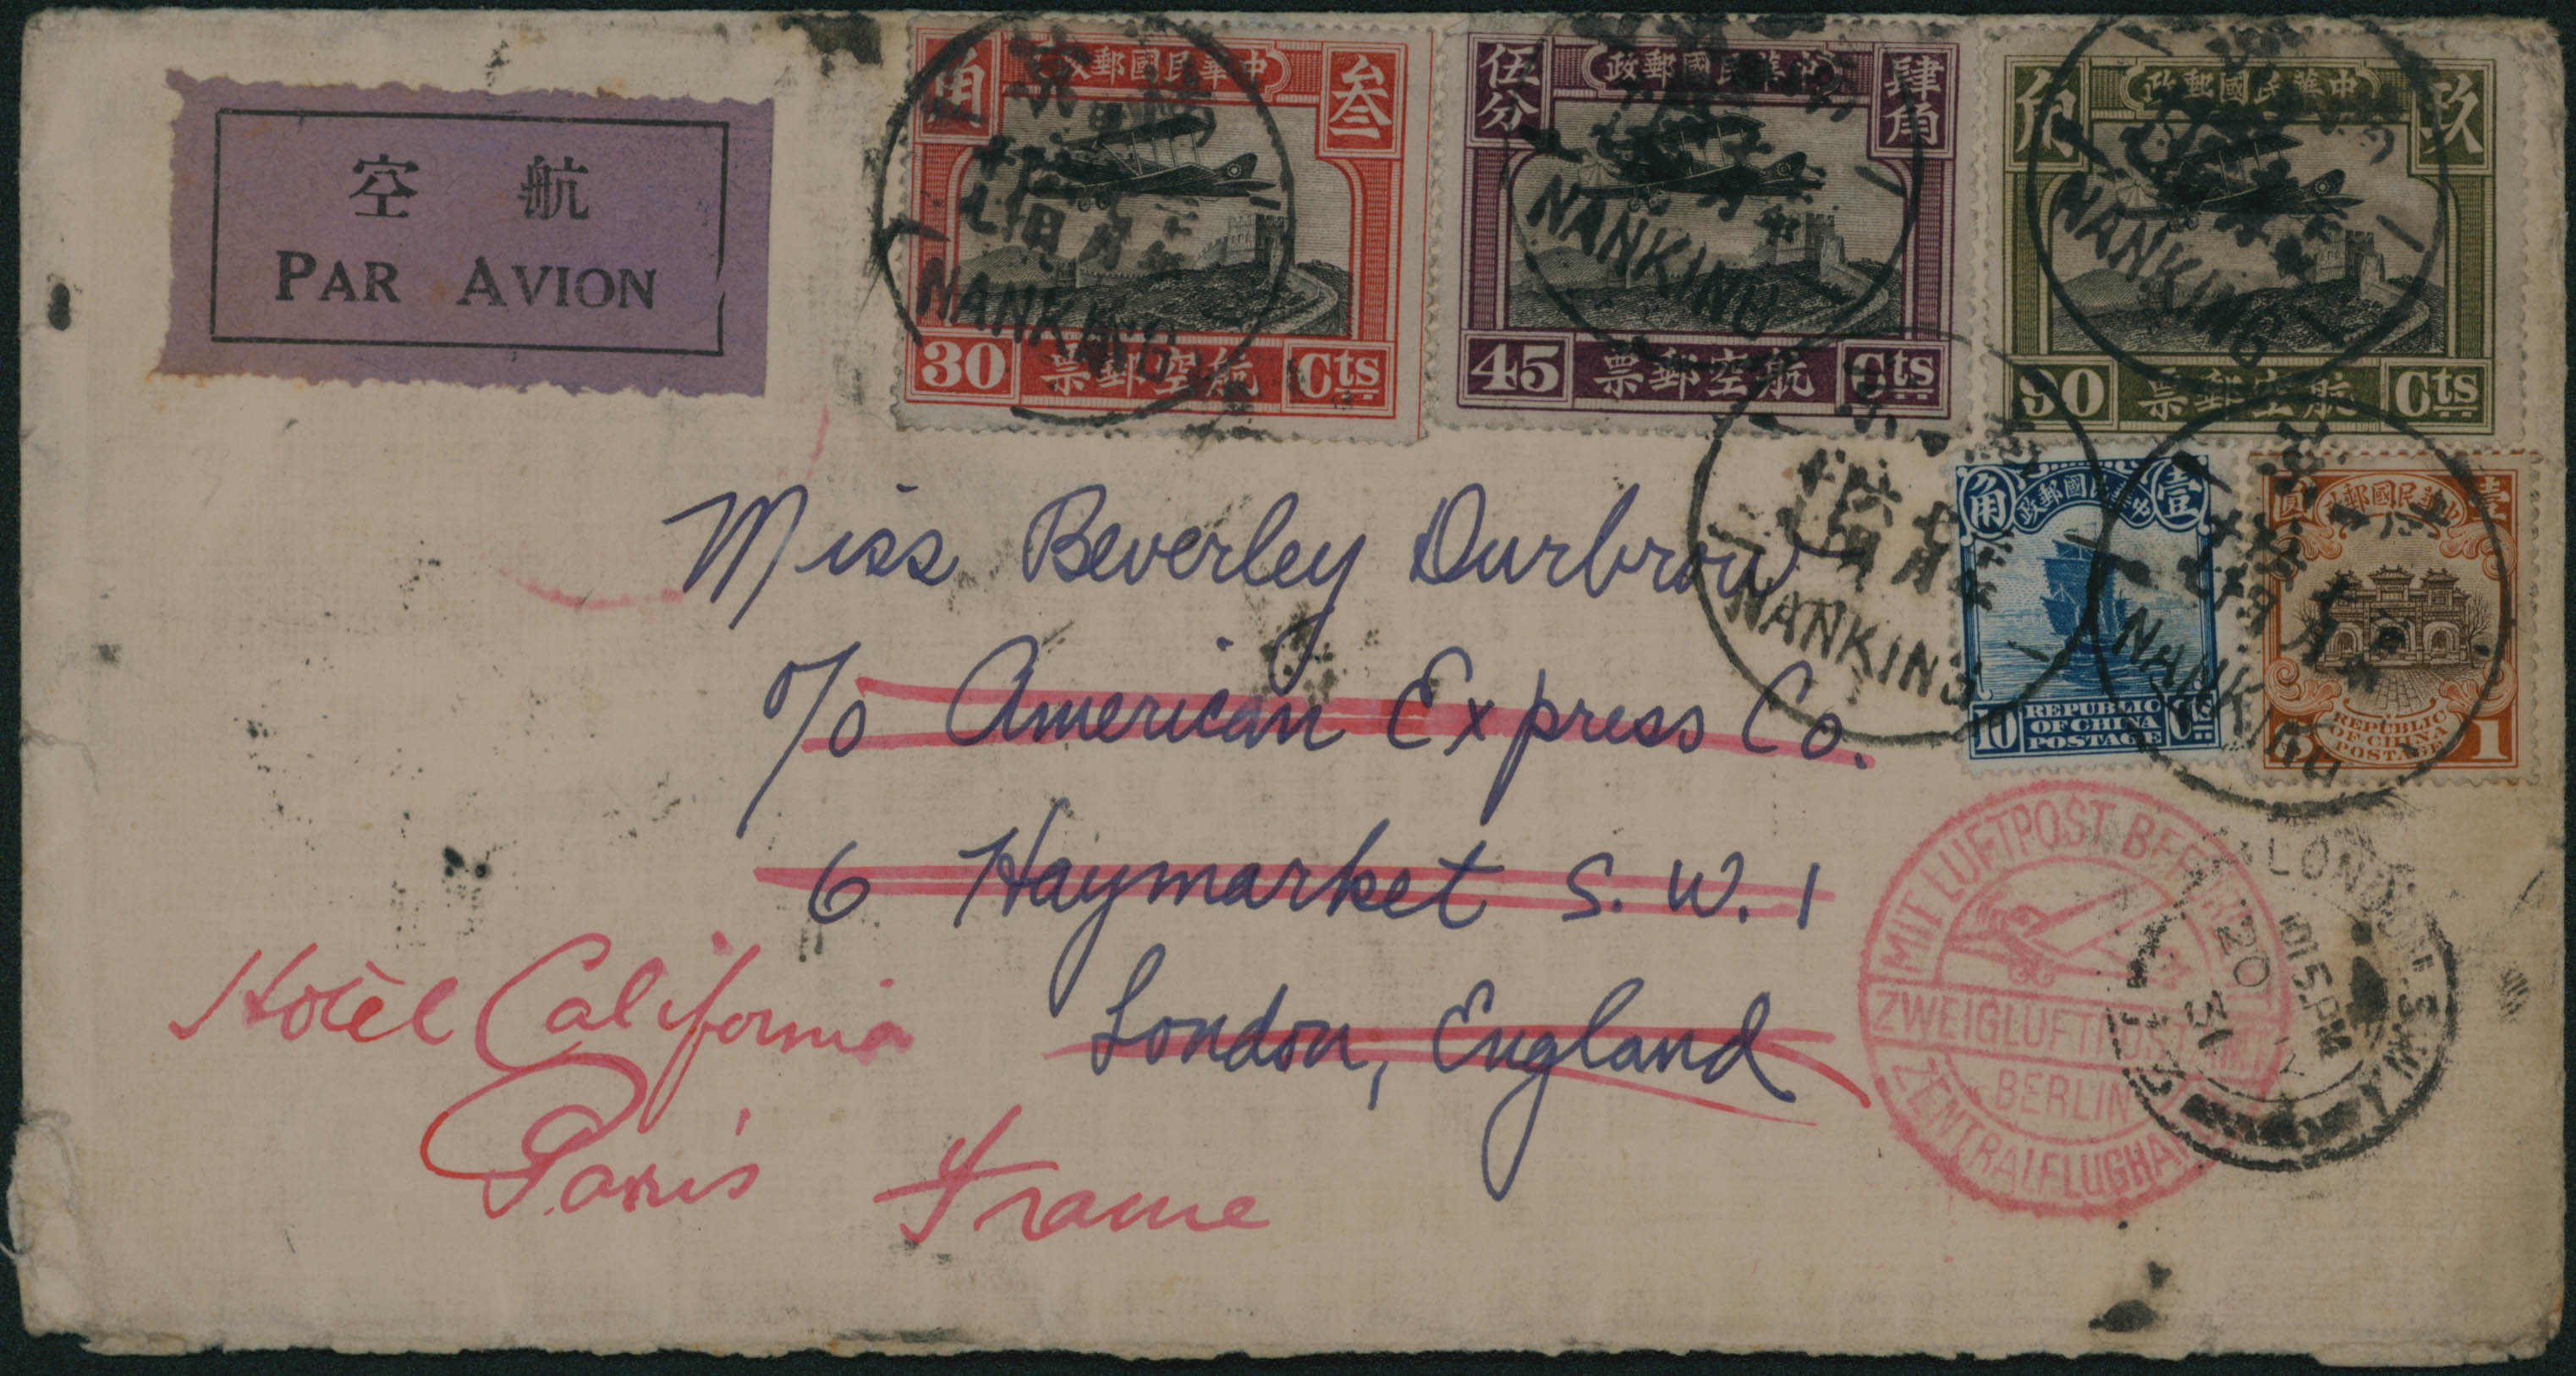 空 航
PAR AVION
角 政郵國民華中 叁
30 票郵空航 Cts
伍分 政郵國民華中 肆角
45 票郵空航 Cts
角 政郵國民華中 玖
90 票郵空航 Cts
角 政郵國民華中 壹
10 REPUBLIC OF CHINA POSTAGE Cts
圓 政郵國民華中 壹
REPUBLIC OF CHINA POSTAGE 1
NANKING
NANKING
NANKING
NANKING
NANKING
Miss Beverley Durbrow
c/o American Express Co.
6 Haymarket S. W. 1
London, England
Hotel California
Paris France
MIT LUFTPOST BEFÖRDERT
ZWEIGLUFTPOSTAMT
BERLIN
ZENTRALFLUGHAFEN
LONDON. S.W.1
1015PM
20
31